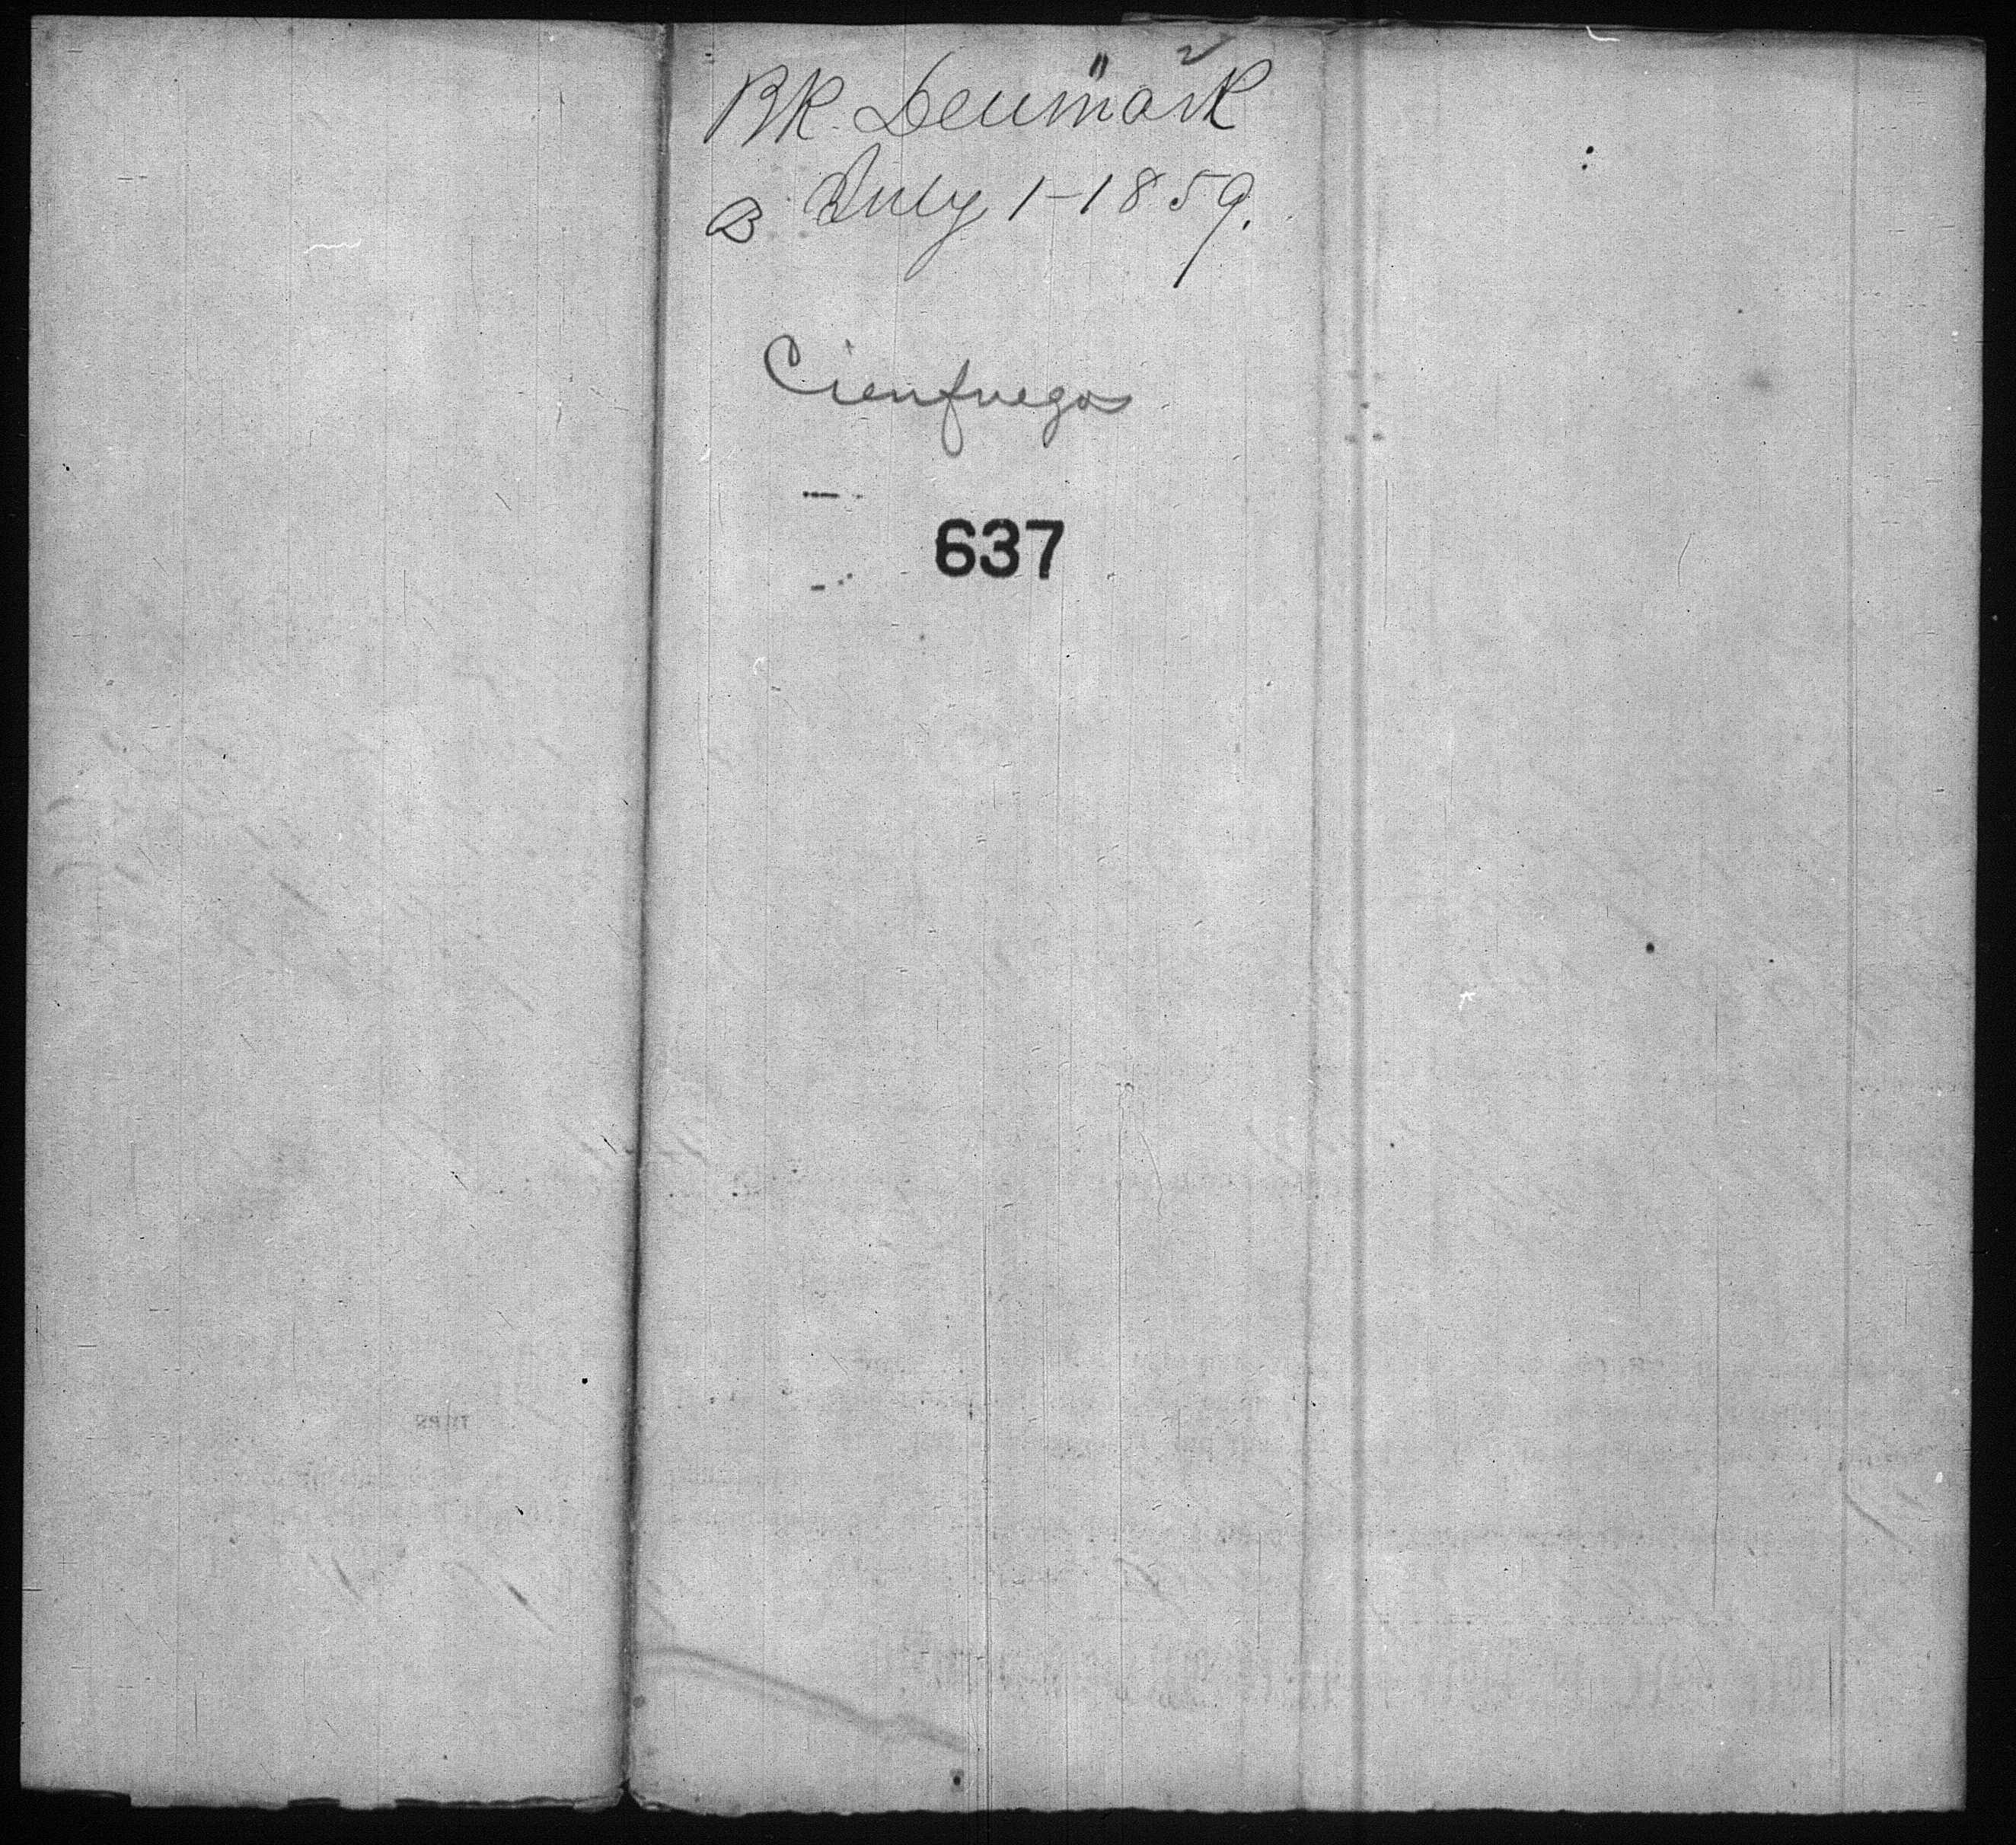 BK. "Denmark
B July 1-1859.
Cienfuegos
637